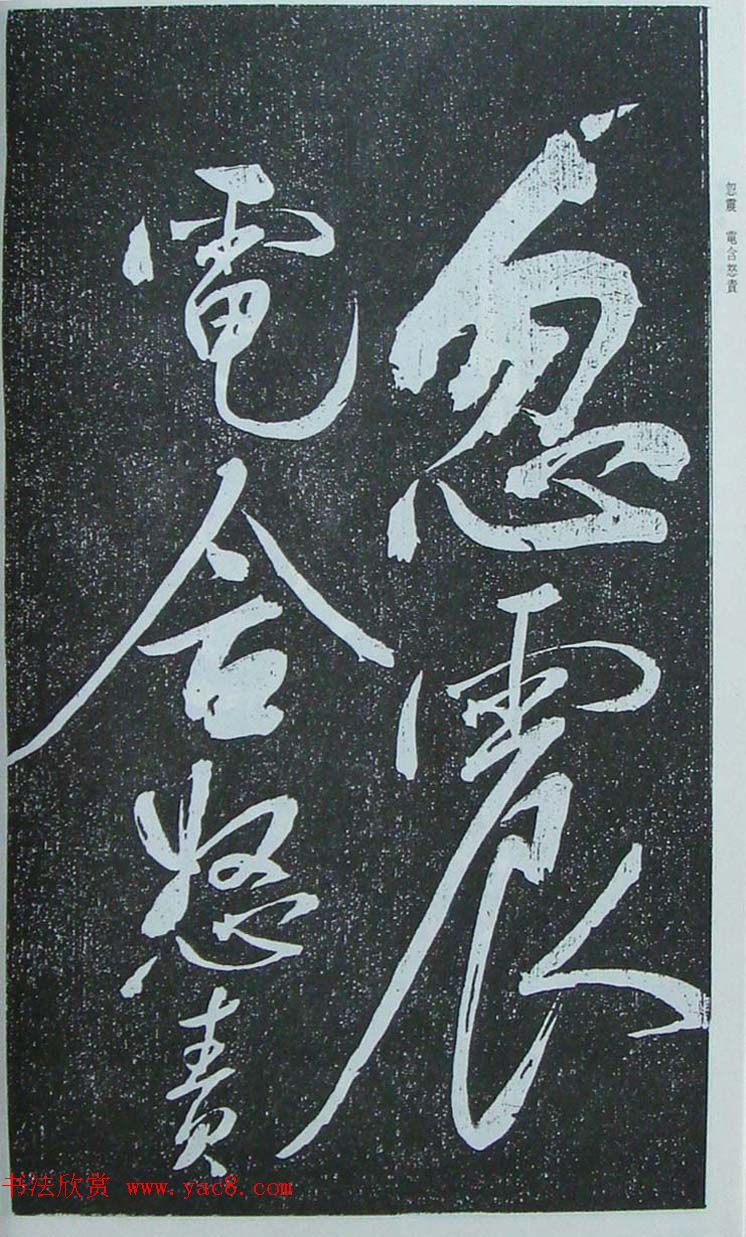 忽震
電含怒責
忽震 電含怒責
书法欣赏 www.yac8.com